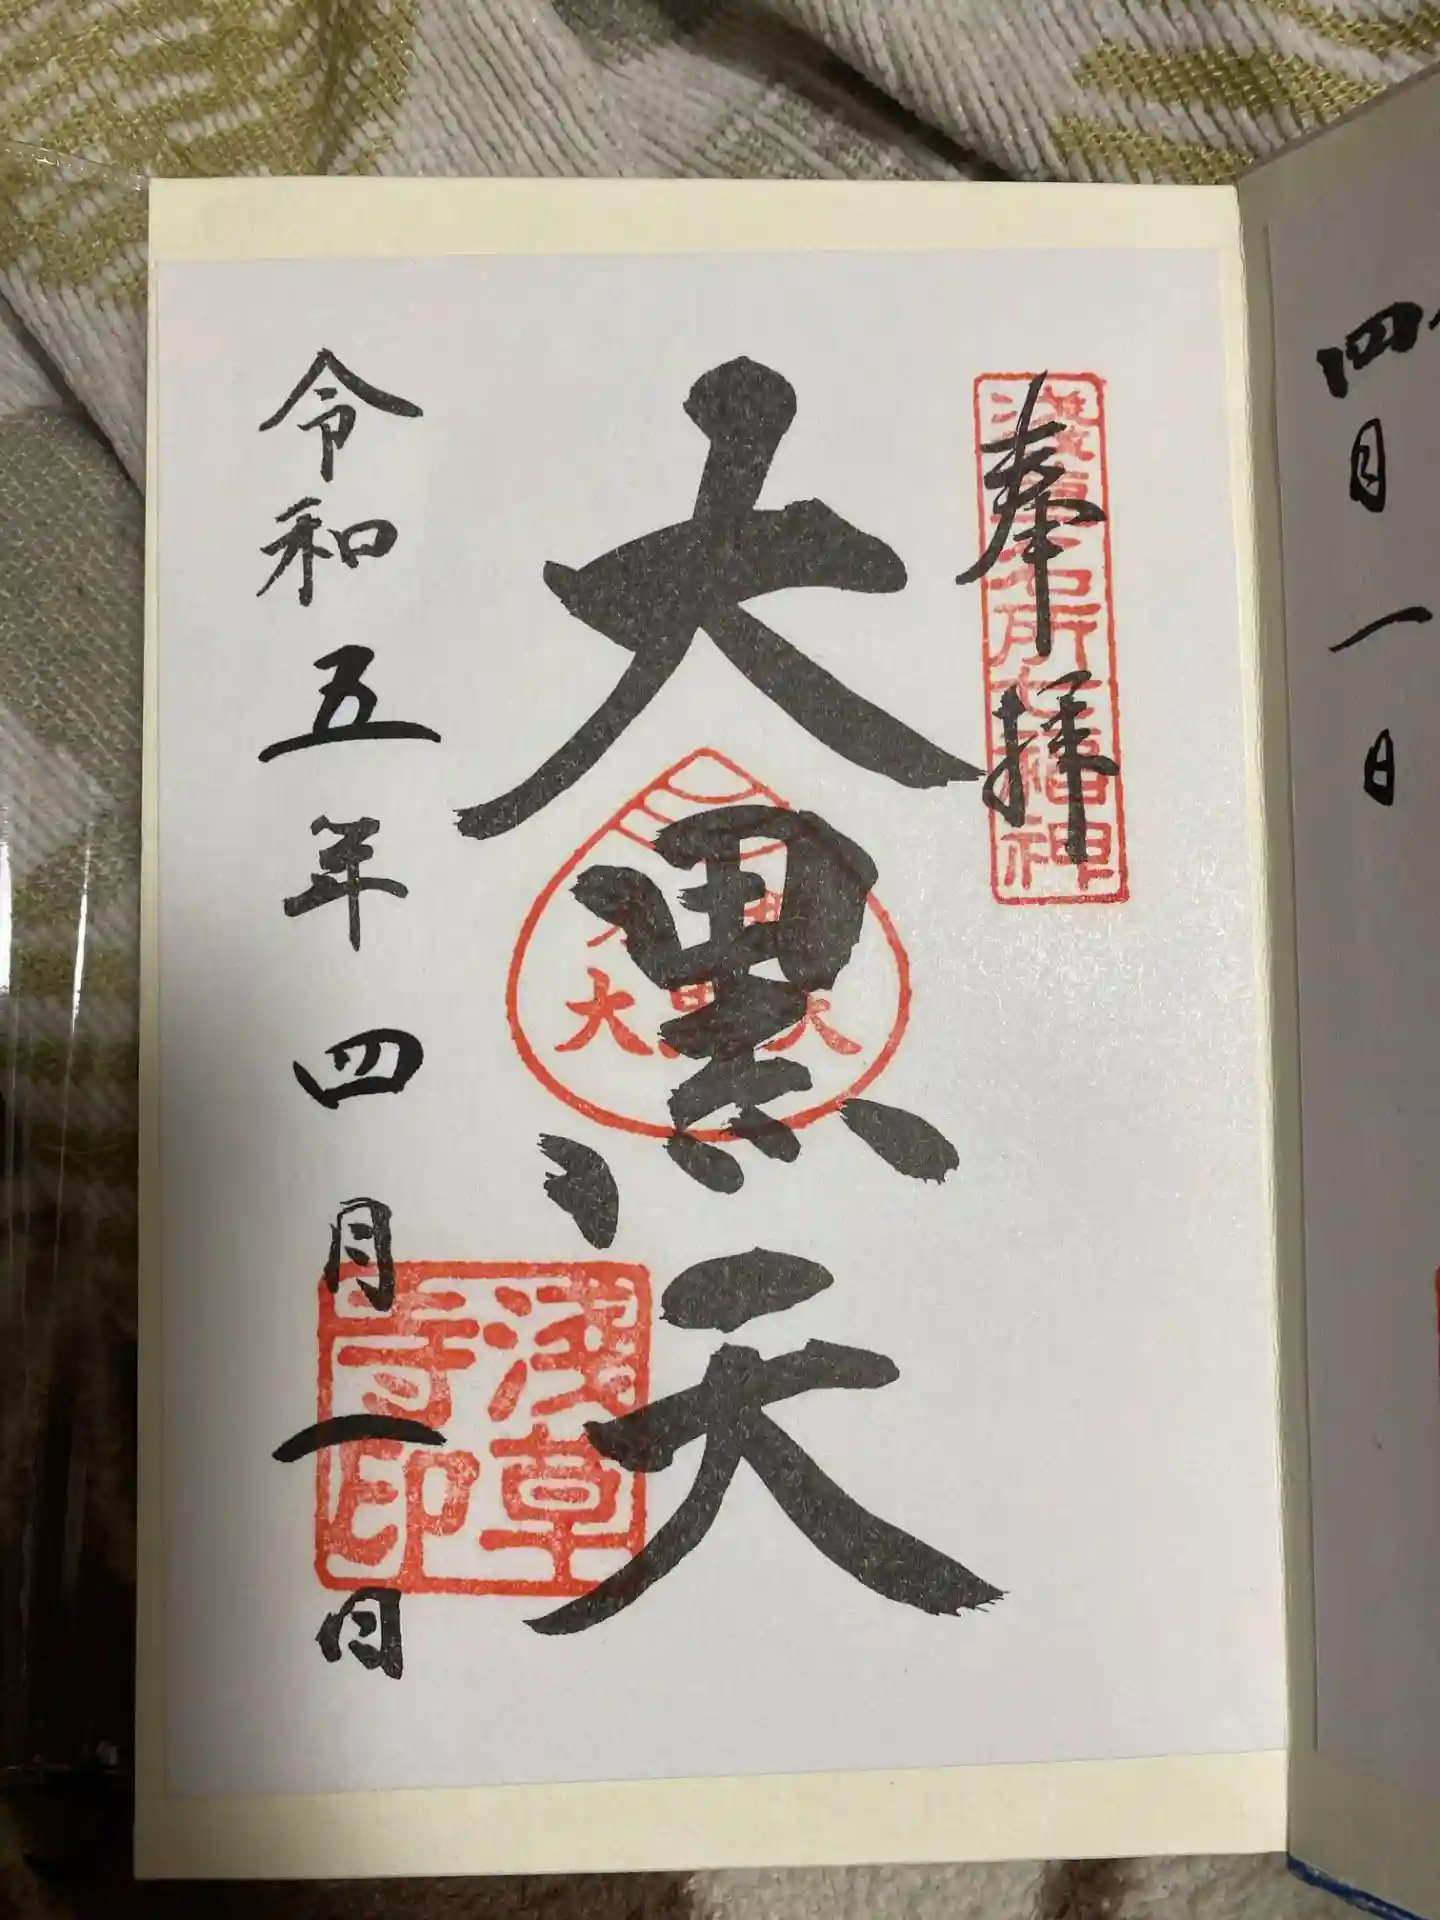 四月一日
奉拝
浅草名所七福神
大黒天
令和五年四月一日
浅草
寺印